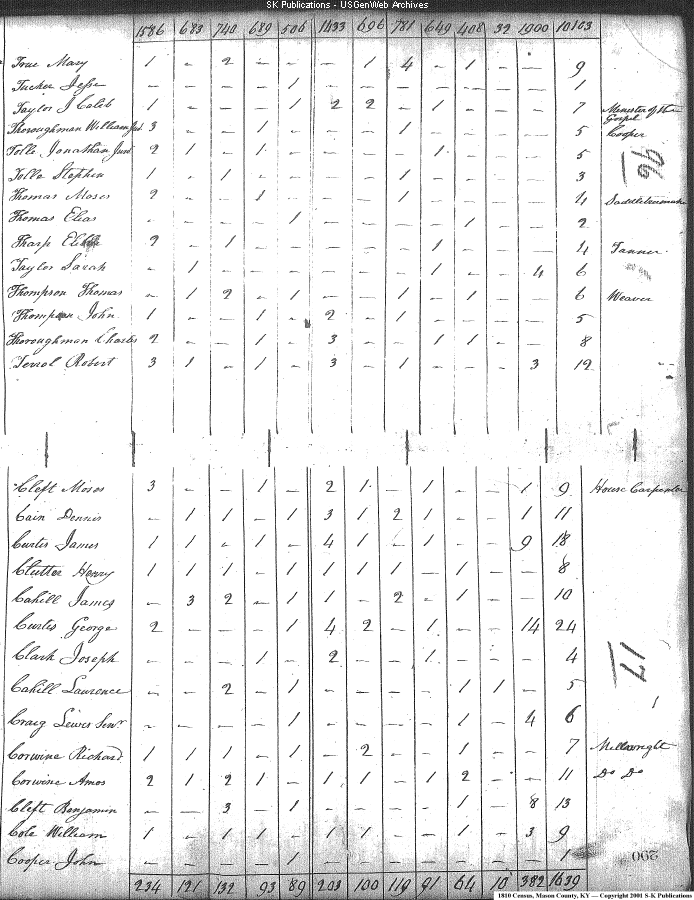 SK Publications - USGenWeb Archives
1586 683 740 689 506 1433 696 781 649 408 32 1900 10103
True Mary 1 - 2 - - - 1 4 - 1 - - 9
Tucker Jesse - - - - 1 - - - - - - - 1
Taylor J Caleb 1 - - - - 2 2 - 1 - - - 7 Minister of the
Gospel
Thoroughman William 3 - - 1 - - - 1 - - - - 5 Cooper
96
Tolle Jonathan Junr 2 1 - 1 - - - - 1 - - - 5
Tolle Stephen 1 - 1 - - - - 1 - - - - 3
Thomas Moses 2 - - 1 - - - 1 - - - - 4
Thomas Elias - - - - 1 - - - - 1 - - 2
Tharp 2 - 1 - - - - - 1 - - - 4 Tanner
Taylor Sarah - 1 - - - - - - 1 - - 4 6
Thompson Thomas - 1 2 - 1 - - 1 - 1 - - 6 Weaver
Thompson John 1 - - 1 - 2 - 1 - - - - 5
Thoroughman Charles 2 - - 1 - 3 - - 1 1 - - 8
Terrol Robert 3 1 - 1 - 3 - 1 - - - 3 12
Cleft Moses 3 - - 1 - 2 1 - 1 - - 1 9 House Carpenter
Cain Dennis - 1 1 - 1 3 1 2 1 - - 1 11
Curtis James 1 1 - 1 - 4 1 - 1 - - 9 18
Clutter Henry 1 1 1 - 1 1 1 1 - 1 - - 8
Cahill James - 3 2 - 1 1 - 2 - 1 - - 10
Curtis George 2 - - - 1 4 2 - 1 - - 14 24
Clark Joseph - - - 1 - 2 - - 1 - - - 4
17
Cahill Laurence - - 2 - 1 - - - - 1 1 - 5
Craig Lewis Senr - - - - 1 - - - - 1 - 4 6
Corwine Richard 1 1 1 - 1 - 2 - - 1 - - 7 Millwright
Corwine Amos 2 1 2 1 - 1 1 - 1 2 - - 11 Do Do
Cleft Benjamin - - 3 - 1 - - - - 1 - 8 13
Cole William 1 - 1 1 - 1 1 - - 1 - 3 9
Cooper John - - - - 1 - - - - - - - 1
290
234 121 132 93 89 203 100 119 91 64 10 382 1639
1810 Census, Mason County, KY — Copyright 2001 S-K Publications